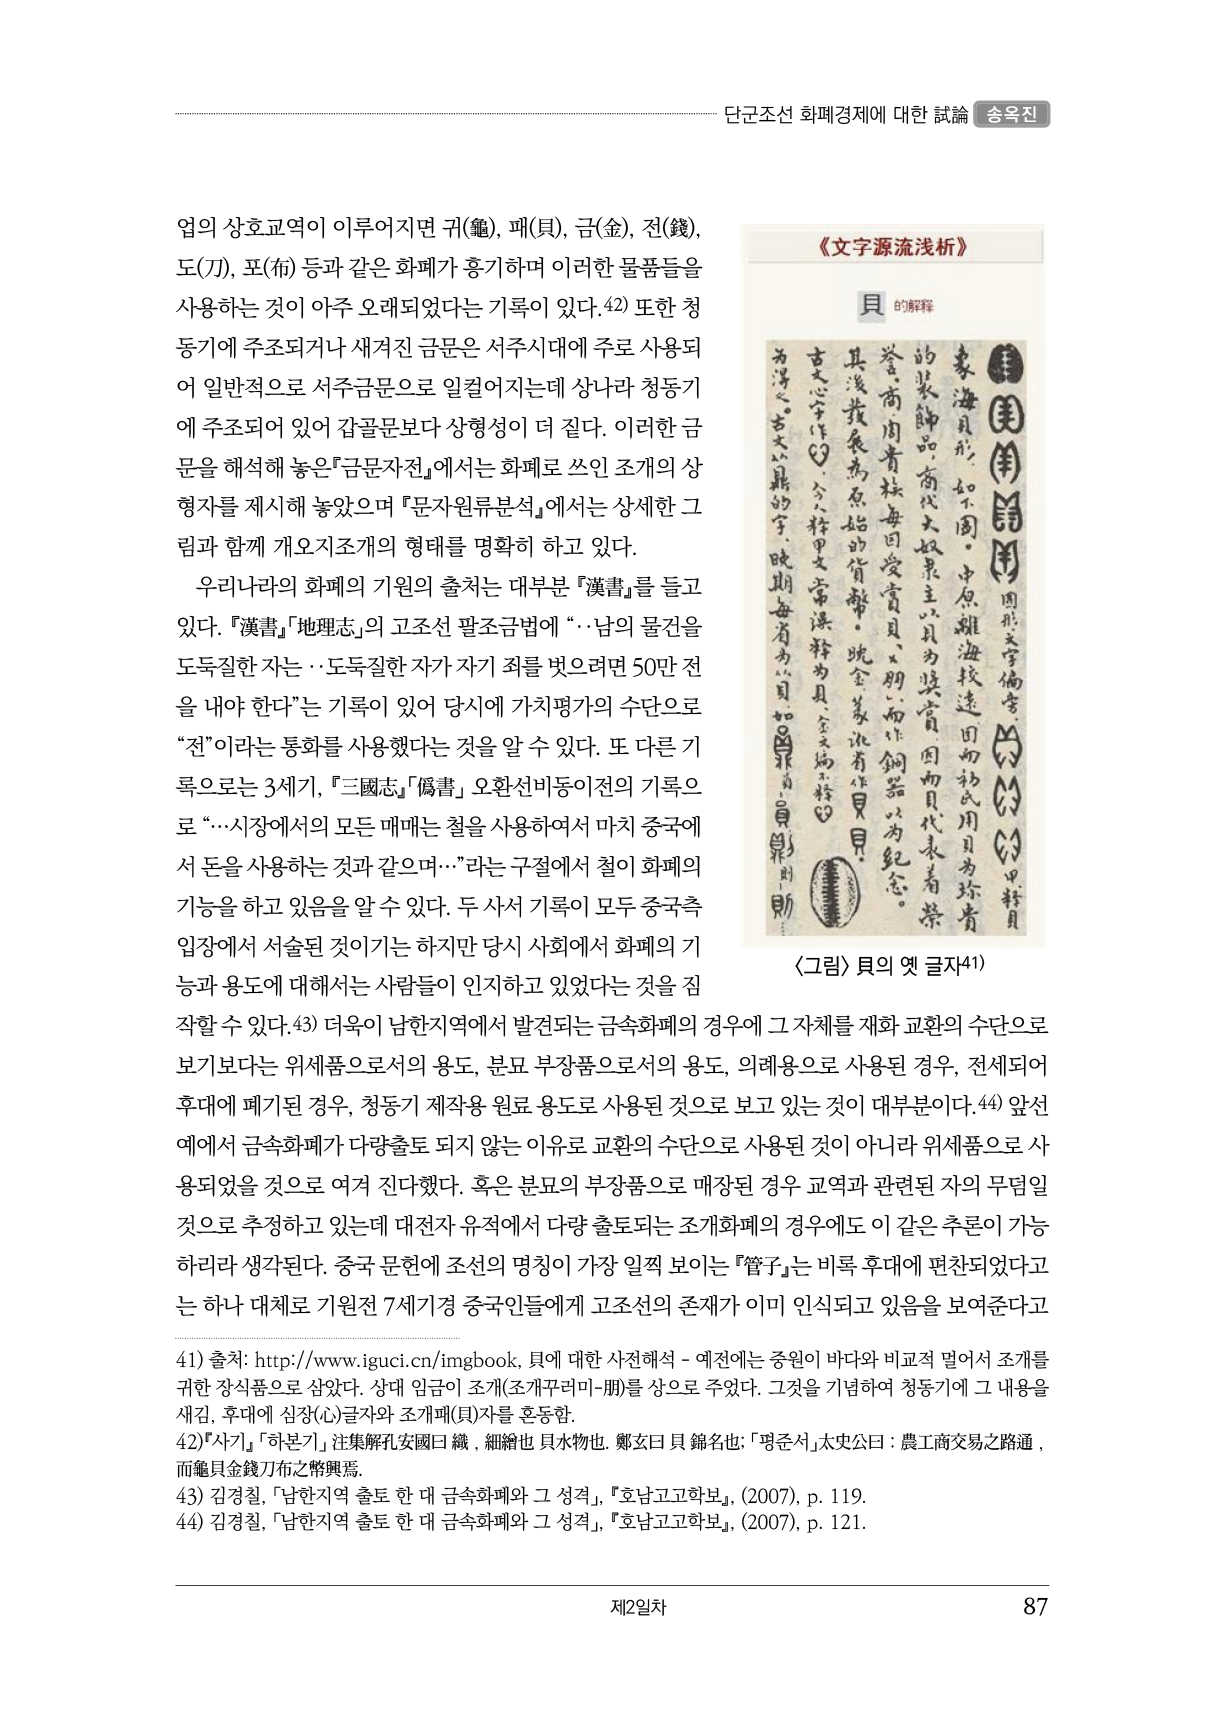 단군조선 화폐경제에 대한 試論 송옥진
업의 상호교역이 이루어지면 귀(龜), 패(貝), 금(金), 전(錢),
도(刀), 포(布) 등과 같은 화폐가 흥기하며 이러한 물품들을
사용하는 것이 아주 오래되었다는 기록이 있다.42) 또한 청
동기에 주조되거나 새겨진 금문은 서주시대에 주로 사용되
어 일반적으로 서주금문으로 일컬어지는데 상나라 청동기
에 주조되어 있어 갑골문보다 상형성이 더 짙다. 이러한 금
문을 해석해 놓은『금문자전』에서는 화폐로 쓰인 조개의 상
형자를 제시해 놓았으며『문자원류분석』에서는 상세한 그
림과 함께 개오지조개의 형태를 명확히 하고 있다.
우리나라의 화폐의 기원의 출처는 대부분『漢書』를 들고
있다.『漢書』「地理志」의 고조선 팔조금법에 “‥남의 물건을
도둑질한 자는 ‥도둑질한 자가 자기 죄를 벗으려면 50만 전
을 내야 한다”는 기록이 있어 당시에 가치평가의 수단으로
“전”이라는 통화를 사용했다는 것을 알 수 있다. 또 다른 기
록으로는 3세기,『三國志』「僞書」 오환선비동이전의 기록으
로 “…시장에서의 모든 매매는 철을 사용하여서 마치 중국에
서 돈을 사용하는 것과 같으며…”라는 구절에서 철이 화폐의
기능을 하고 있음을 알 수 있다. 두 사서 기록이 모두 중국측
입장에서 서술된 것이기는 하지만 당시 사회에서 화폐의 기
능과 용도에 대해서는 사람들이 인지하고 있었다는 것을 짐
작할 수 있다.43) 더욱이 남한지역에서 발견되는 금속화폐의 경우에 그 자체를 재화 교환의 수단으로
보기보다는 위세품으로서의 용도, 분묘 부장품으로서의 용도, 의례용으로 사용된 경우, 전세되어
후대에 폐기된 경우, 청동기 제작용 원료 용도로 사용된 것으로 보고 있는 것이 대부분이다.44) 앞선
예에서 금속화폐가 다량출토 되지 않는 이유로 교환의 수단으로 사용된 것이 아니라 위세품으로 사
용되었을 것으로 여겨 진다했다. 혹은 분묘의 부장품으로 매장된 경우 교역과 관련된 자의 무덤일
것으로 추정하고 있는데 대전자 유적에서 다량 출토되는 조개화폐의 경우에도 이 같은 추론이 가능
하리라 생각된다. 중국 문헌에 조선의 명칭이 가장 일찍 보이는『管子』는 비록 후대에 편찬되었다고
는 하나 대체로 기원전 7세기경 중국인들에게 고조선의 존재가 이미 인식되고 있음을 보여준다고
《文字源流浅析》
貝 的解释
圆形文字偏旁、甲释貝
象海貝形，如下圖。中原離海较遠，因而初民用貝为珍貴
的装飾品，商代大奴隶主以貝为奖賞，因而貝代表着荣
誉。商周貴族每因受賞貝、朋，而作銅器以为紀念。
其後發展為原始的貨幣。晚金篆讹省作貝貝。
古文心字作
古文以鼎的字，晚期每省为从貝，如
〈그림〉 貝의 옛 글자41)
41) 출처: http://www.iguci.cn/imgbook, 貝에 대한 사전해석 - 예전에는 중원이 바다와 비교적 멀어서 조개를
귀한 장식품으로 삼았다. 상대 임금이 조개(조개꾸러미-朋)를 상으로 주었다. 그것을 기념하여 청동기에 그 내용을
새김, 후대에 심장(心)글자와 조개패(貝)자를 혼동함.
42)『사기』「하본기」注集解孔安國曰 織 , 細繒也 貝水物也. 鄭玄曰 貝 錦名也;「평준서」太史公曰 : 農工商交易之路通 ,
而龜貝金錢刀布之幣興焉.
43) 김경칠,「남한지역 출토 한 대 금속화폐와 그 성격」,『호남고고학보』, (2007), p. 119.
44) 김경칠,「남한지역 출토 한 대 금속화폐와 그 성격」,『호남고고학보』, (2007), p. 121.
제2일차
87